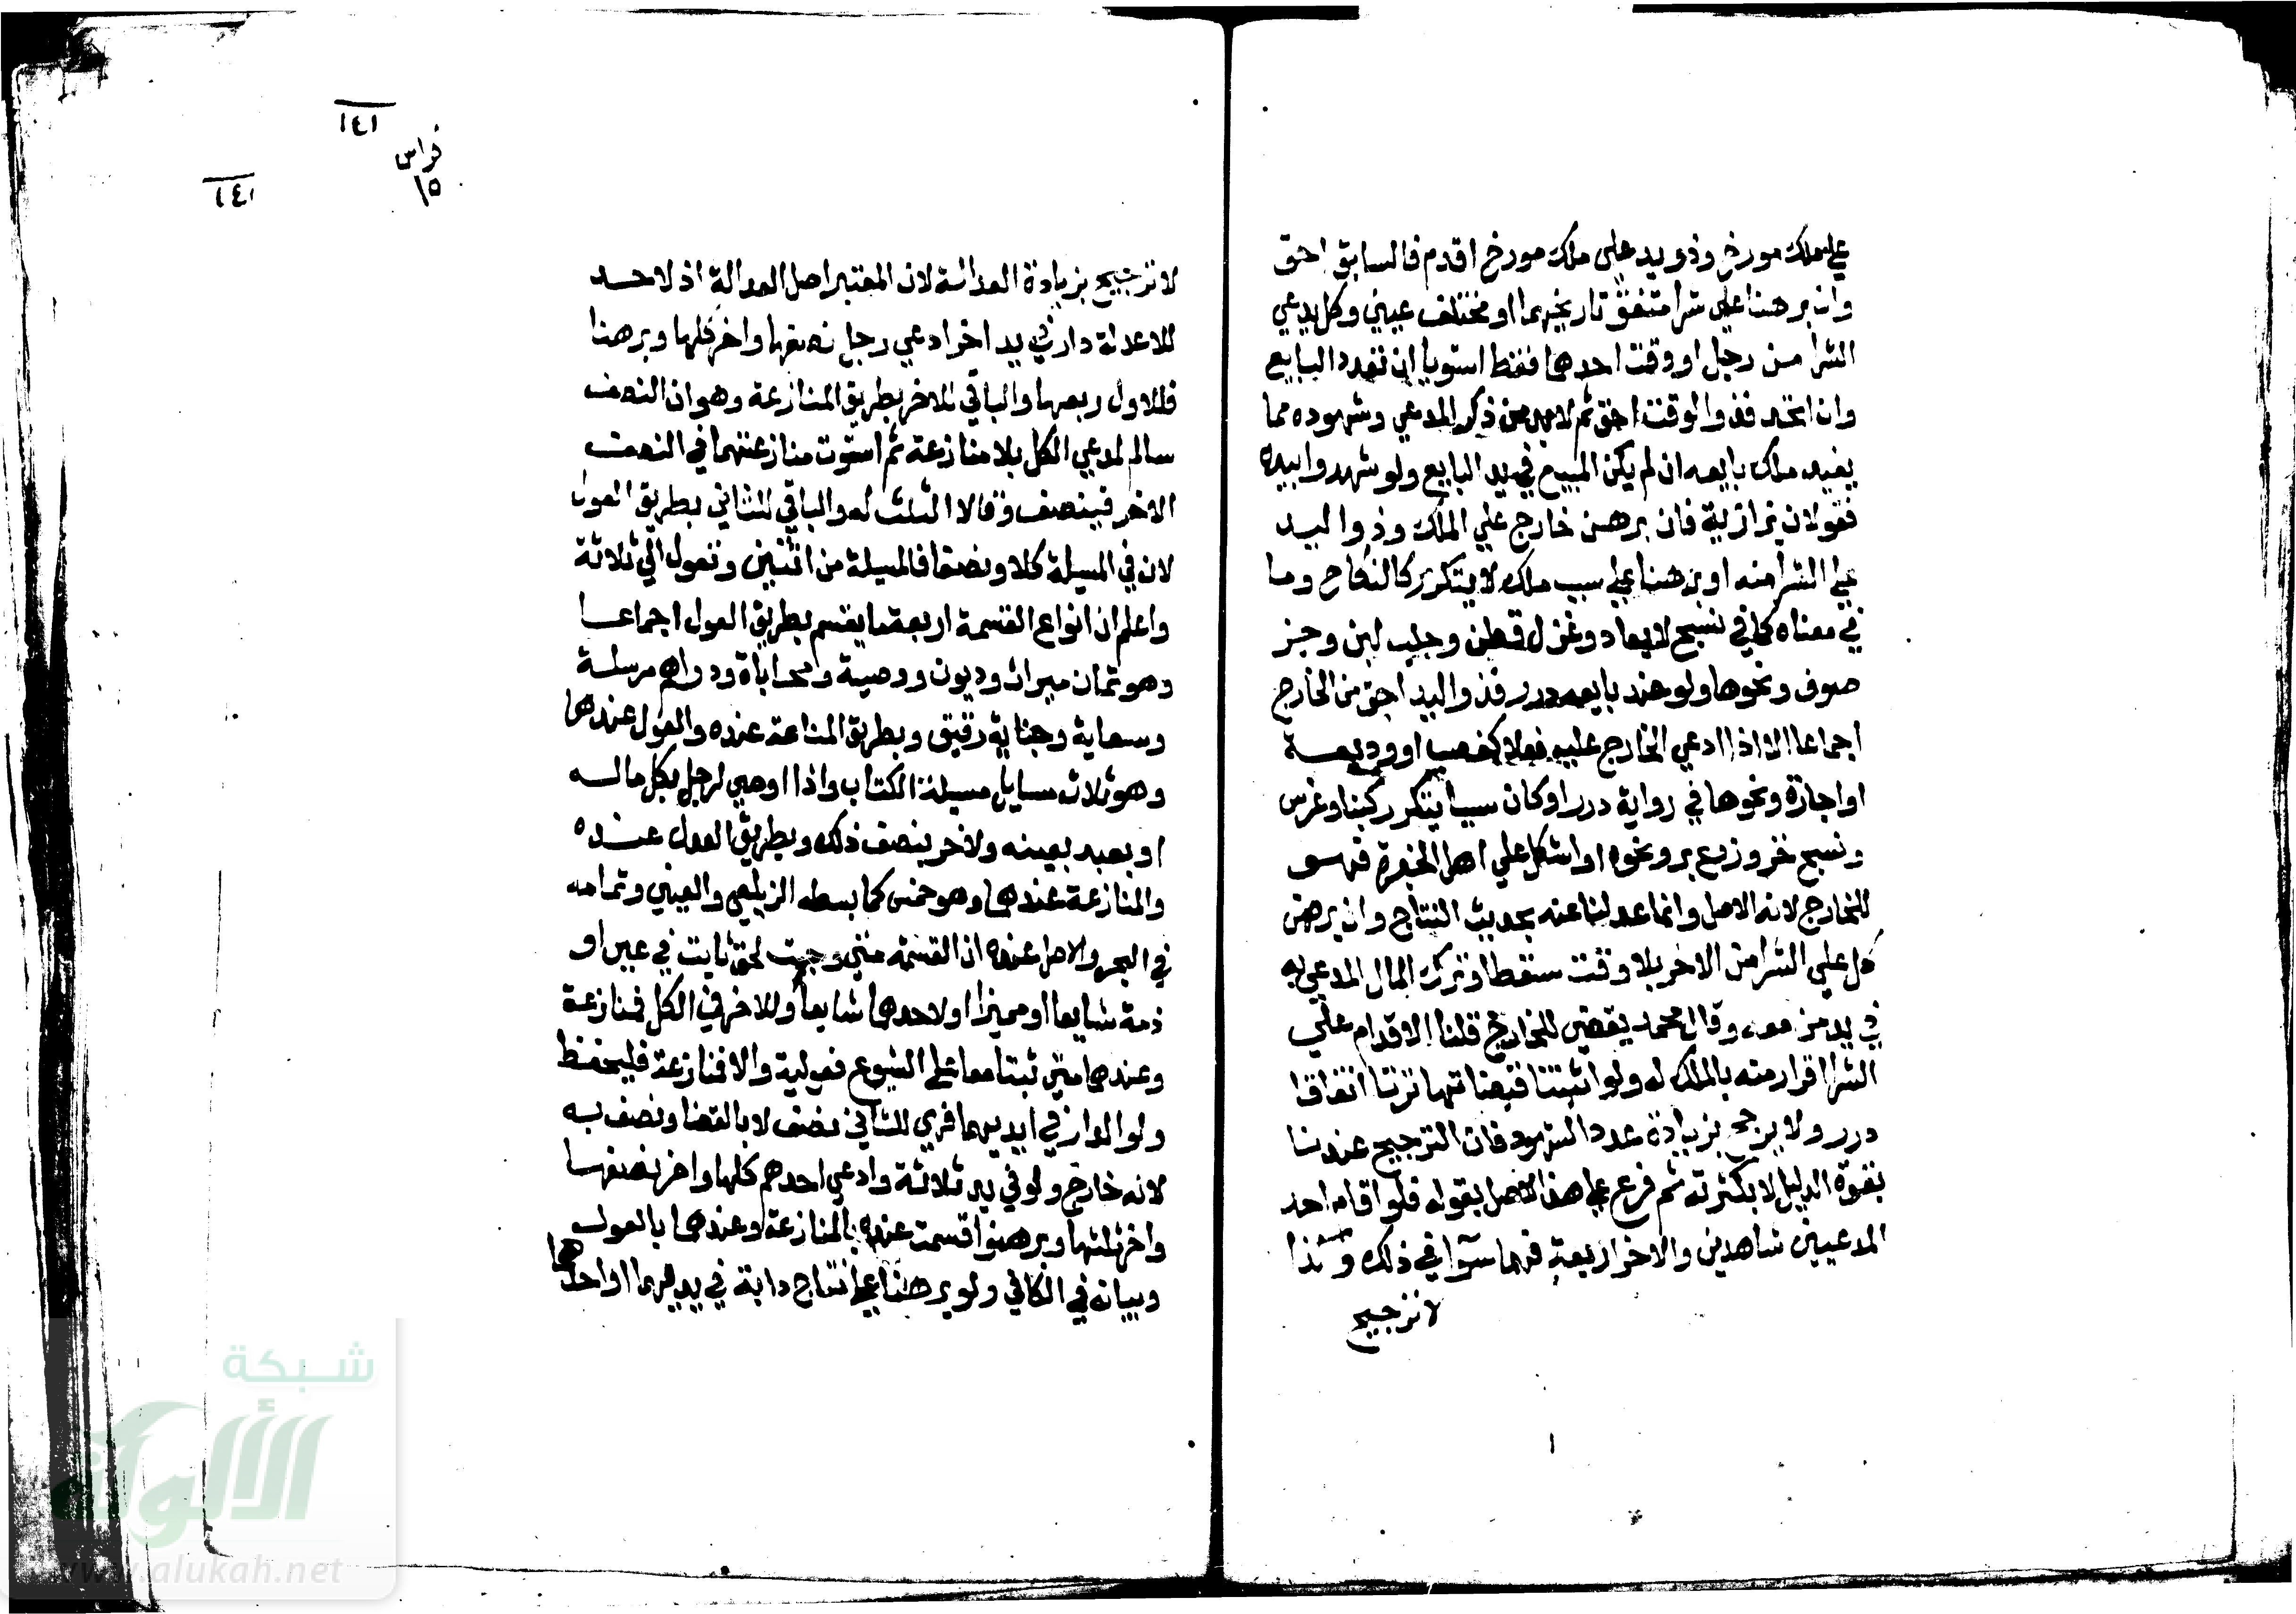 علي ملك مورخ وذو يد علي ملك مورخ اقدم فالسابق احق
وان برهنا علي شرا متفق تاريخهما او مختلف عيني وكل يدعي
الشرا من رجل او وقت احدهما فقط استويا ان تعدد البايع
وان اتحد فذو الوقت احق ثم لابد من ذكر المدعي وشهوده مما
يفيد ملك بايعه ان لم يكن المبيع في يد البايع ولو شهدوا بيده
فقولان بزازية فان برهن خارج علي الملك وذو اليد
علي الشرا منه او برهنا علي سبب ملك لا يتكرر كالنكاح وما
في معناه كما في نسج لا يعاد وغزل قطن وحلب لبن وجز
صوف ونحوها ولو عند بايعه درر فذو اليد احق من الخارج
اجماعا الا اذا ادعي الخارج عليه فعلا كغصب او وديعة
او اجازة ونحوها في رواية درر او كان سببا يتكرر كبنا وغرس
ونسج خز وزرع بر ونحوه او اشكل علي اهل الخبرة فهو
للخارج لانه الاصل وانما عدلنا عنه بحديث النتاج وان برهن
كل علي الشرا من الاخر بلا وقت سقطا وترك المال المدعي به
في يد من معه وقال محمد يقضي للخارج قلنا الاقدام علي
الشرا اقرار منه بالملك له ولو اثبتا قبضا تهاترتا اتفاقا
درر ولا يرجح بزيادة عدد الشهود فان الترجيح عندنا
بقوة الدليل لا بكثرته ثم فرع علي هذا الاصل بقوله فلو اقام احد
المدعيين شاهدين والاخر اربعة فهما سوا في ذلك وكذا
لا ترجيح
١٤١
١٥
١٤١
لا ترجيح بزيادة العدالة لان المعتبر اصل العدالة اذ لا حد
للاعدلة دار في يد اخر ادعي رجل نصفها واخر كلها وبرهنا
فللاول ربعها والباقي للاخر بطريق المنازعة وهو ان النصف
سالم لمدعي الكل بلا منازعة ثم استوت منازعتهما في النصف
الاخر فينصف وقالا الثلث له والباقي للثاني بطريق العول
لان في المسيلة كلا ونصفا فالمسيلة من اثنين وتعول الي ثلاثة
واعلم ان انواع القسمة اربعة ما يقسم بطريق العول اجماعا
وهو ثمان ميراث وديون ووصية ومحاباة ودراهم مرسلة
وسعاية وجناية رقيق وبطريق المنازعة عنده والعول عندهما
وهو ثلاث مسايل مسيلة الكتاب واذا اوصي لرجل بكل ماله
او بعبد بعينه ولاخر بنصف ذلك وبطريق العول عنده
والمنازعة عندهما وهو خمس كما بسطه الزيلعي والعيني وتمامه
في البحر والاصل عنده ان القسمة متي وجبت لحق ثابت في عين او
ذمة شايعا او مميزا او لاحدهما شايعا وللاخر في الكل فمنازعة
وعندهما متي ثبتا معا علي الشيوع فعولية والا فمنازعة فليحفظ
ولو الدار في ايديهما فهي للثاني نصف لا بالقضا ونصف به
لانه خارج ولو في يد ثلاثة وادعي احدهم كلها واخر نصفها
واخر ثلثها وبرهنوا قسمت عنده بالمنازعة وعندهما بالعول
وبيانه في الكافي ولو برهنا علي نتاج دابة في يديهما او احدهما
شبكة
الألوكة
www.alukah.net